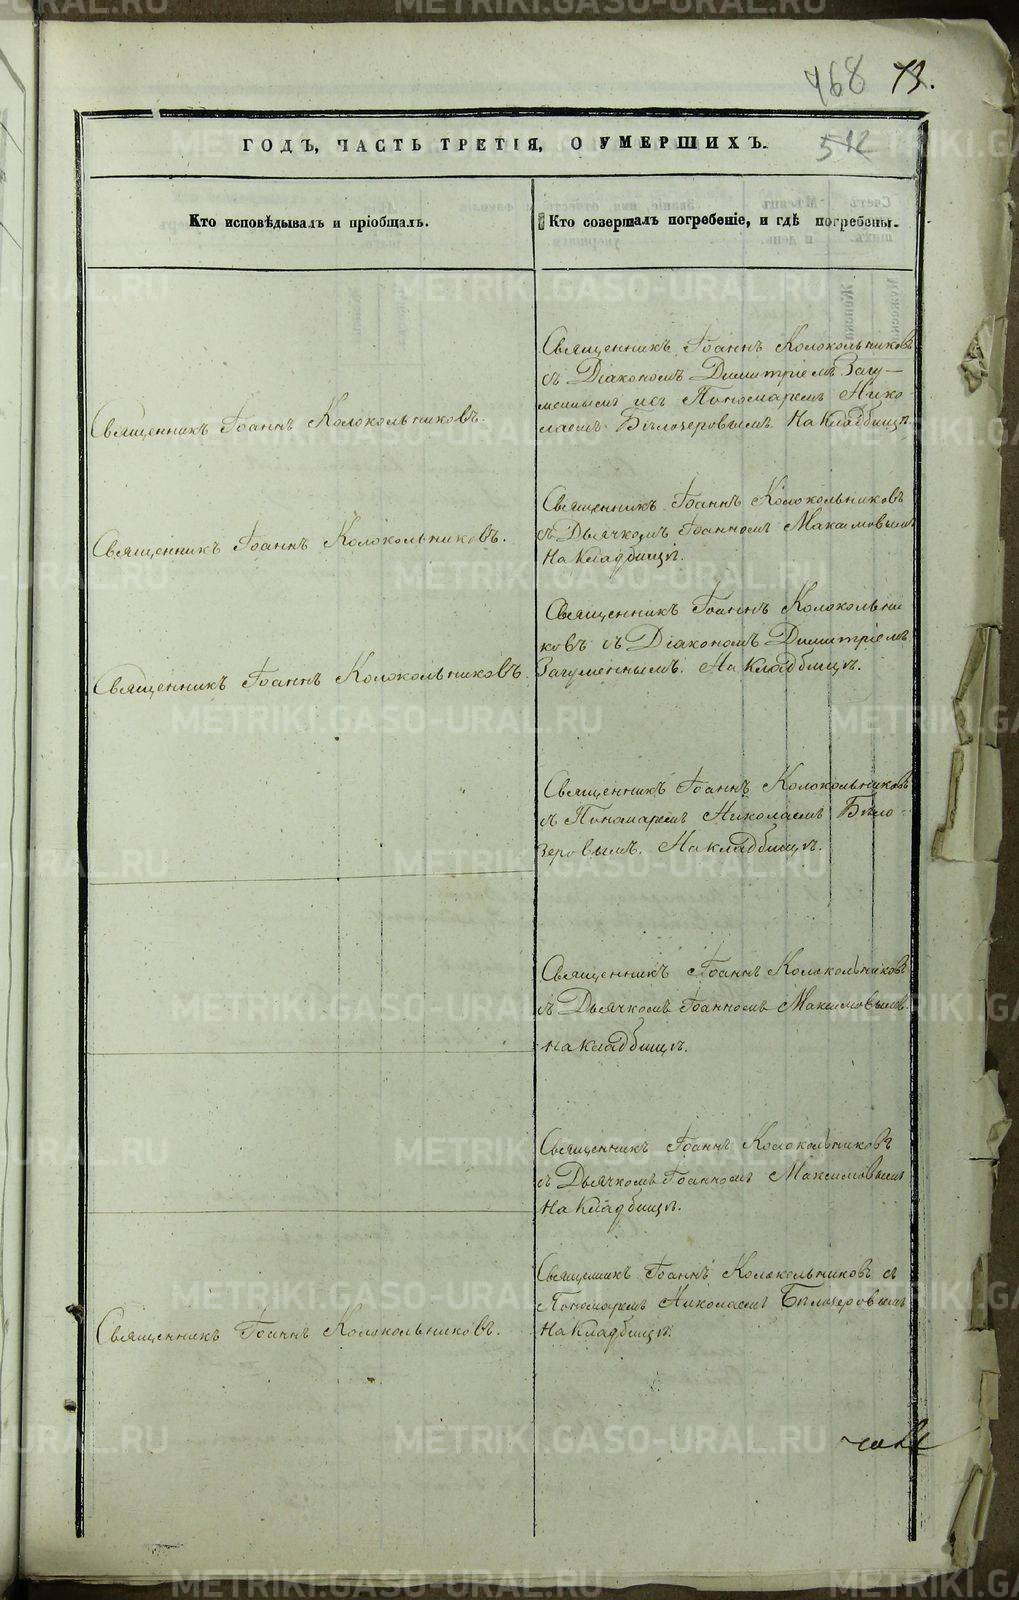 768 73.
ГОДЪ, ЧАСТЬ ТРЕТІЯ, О УМЕРШИХЪ.
512
Кто исповѣдывалъ и пріобщалъ.
Кто совершалъ погребеніе, и гдѣ погребены.
Священникъ Іоаннъ Колокольниковъ
съ Діакономъ Димитріемъ Загу-
меннымъ и съ Пономаремъ Нико-
лаемъ Бѣлозеровымъ На Кладбищѣ.
Священникъ Іоаннъ Колокольниковъ.
Священникъ Іоаннъ Колокольниковъ
съ Дьячкомъ Іоанномъ Максимовымъ
На Кладбищѣ.
Священникъ Іоаннъ Колокольниковъ.
Священникъ Іоаннъ Колокольни
ковъ съ Діакономъ Димитріемъ
Загуменнымъ. На Кладбищѣ.
Священникъ Іоаннъ Колокольниковъ.
Священникъ Іоаннъ Колокольниковъ
съ Пономаремъ Николаемъ Бѣло-
зеровымъ. На кладбищѣ.
Священникъ Іоаннъ Колокольниковъ
съ Дьячкомъ Іоанномъ Максимовымъ.
На кладбищѣ.
Священникъ Іоаннъ Колокольниковъ
съ Дьячкомъ Іоанномъ Максимовымъ
На Кладбищѣ.
Священникъ Іоаннъ Колокольниковъ съ
Пономаремъ Николаемъ Бѣлозеровымъ
На Кладбищѣ.
Священникъ Іоаннъ Колокольниковъ.
METRIKI.GASO-URAL.RU